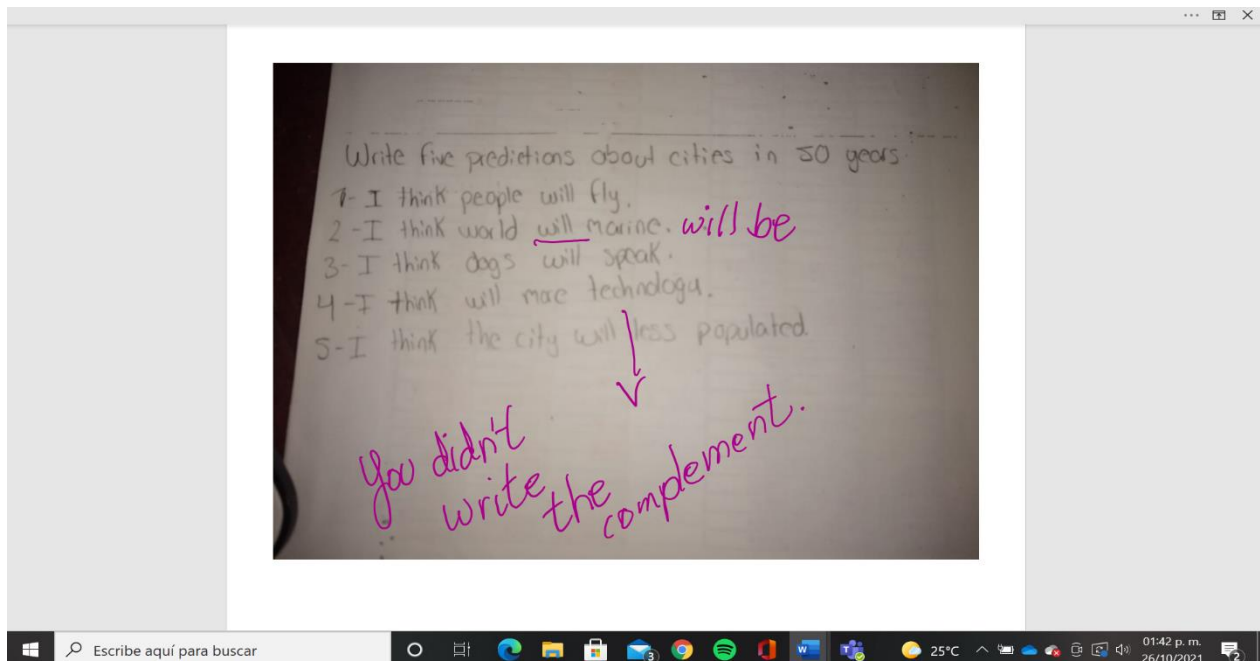 Write five predictions about cities in 50 years.
1- I think people will fly.
2-I think world will marine. will be
3- I think dogs will speak.
4-I think will more technology.
5-I think the city will less populated.
You didn't
write the
complement.
Escribe aquí para buscar
3
25°C
01:42 p. m.
26/10/2021
2